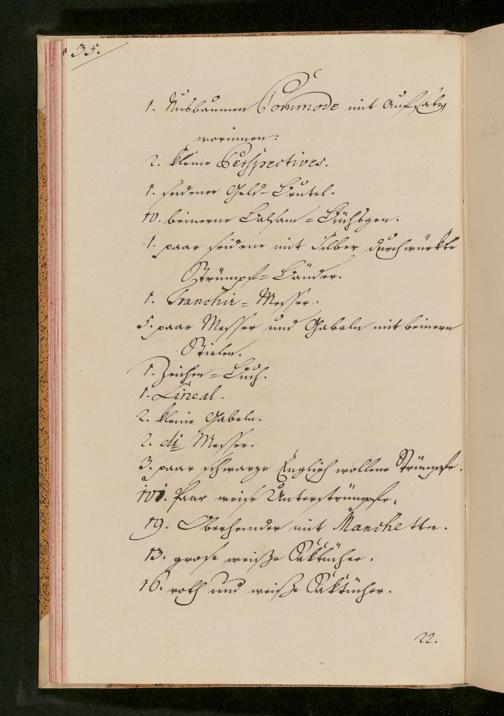 35.
1. Nusbaumen Commode mit Aufsatz
worinnen:
2. kleine Perspectives.
1. seidener Geld-Beutel.
10. beinerne Balsam=Büchsgen.
1. paar seidene mit Silber durchwürkte
Strümpf=Bänder.
1. Tranchir=Messer.
5. paar Messer und Gabeln mit beinern
Stielen.
1. Zeichen=Buch.
1. Lineal.
2. kleine Gabeln.
2. Messer.
3. paar schwarze Englisch wollene Strümpfe.
Paar weise Unterstrümpfe.
19. Oberhemder mit Manchetten.
13. grose weiße Sacktücher.
16. roth und weiße Sacktücher.
22.